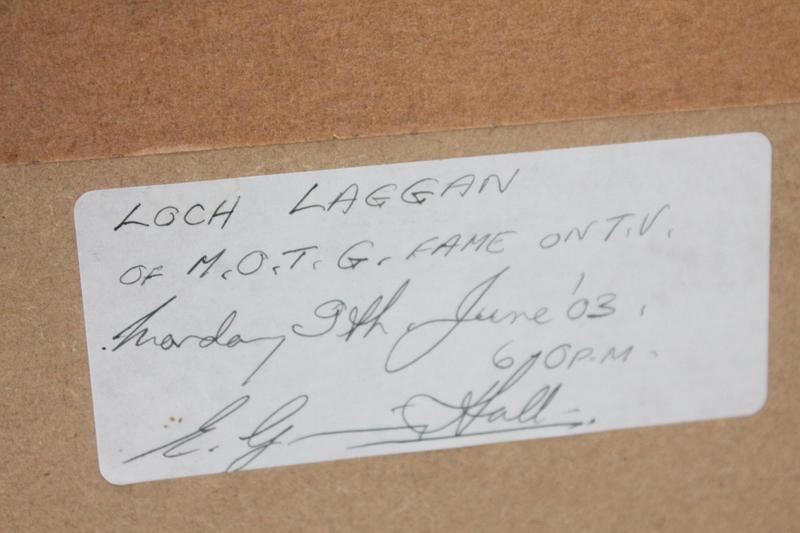 LOCH LAGGAN
OF M.O.T.G. FAME ON T.V.
Monday 9th. June '03.
P.M.
E. G. Hall